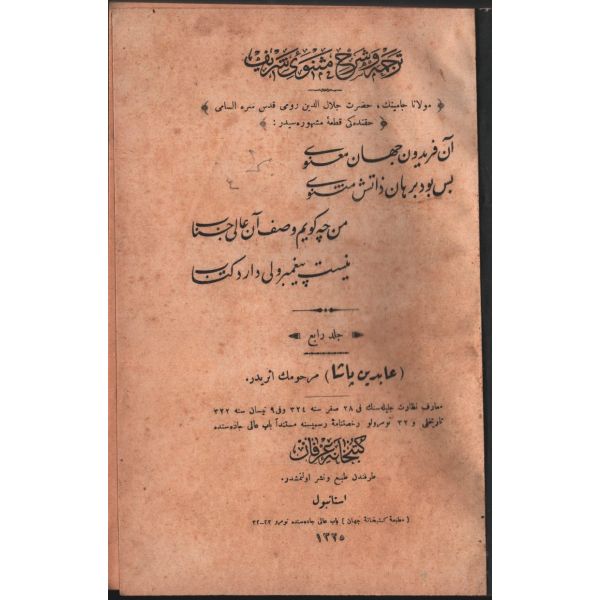 ترجمه و شرح مثنوئ شریف
﴿ مولانا جامینك ، حضرت جلال الدین رومی قدس سره السامی ﴾
﴿ حقنده کی قطعهٔ مشهوره سیدر : ﴾
آن فریدون جهان معنوی
بس بود برهان ذاتش مثنوی
من چه کویم وصف آن عالی جناب
نیست پیغمبر ولی دارد کتاب
جلد رابع
( عابدین پاشا ) مرحومك اثریدر.
معارف نظارت جلیله سنك فی ٢٨ صفر سنه ٣٢٤ وفی ٩ نیسان سنه ٣٢٢
تاریخلی و ٣٢ نومرولو رخصتنامهٔ رسمیسنه مستنداً باب عالی جاده سنده
کتبخانهٔ عرفان
طرفندن طبع و نشر اولنمشدر.
استانبول
( مطبعهٔ کتبخانهٔ جهان ) باب عالی جاده سنده نومرو ٢٢-٣٢
١٣٢٥